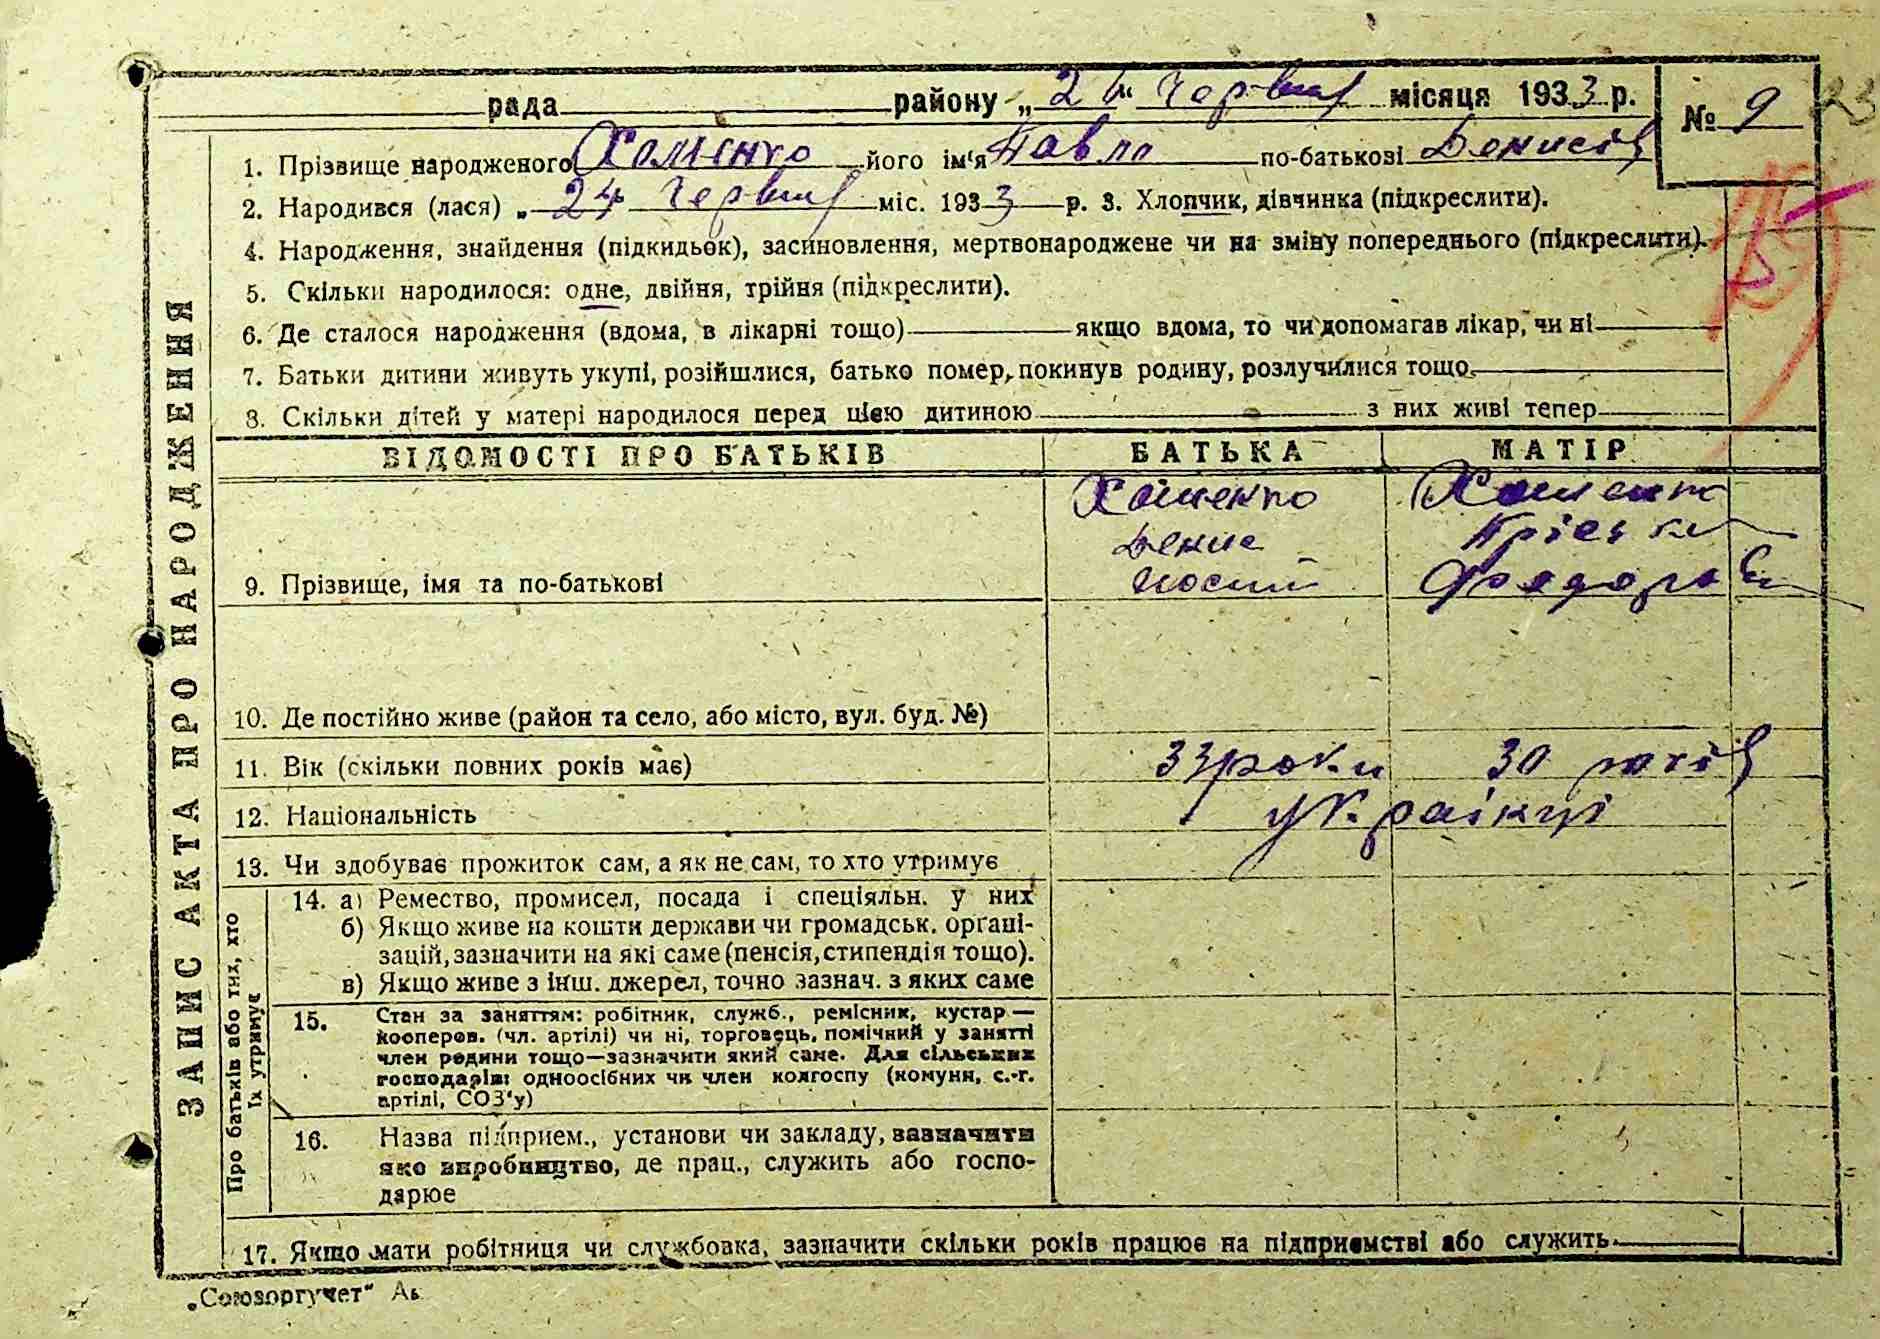 рада района „24" червня місяця 1933 р. № 9
1. Прізвище народженого Хоменко його ім'я Павло по-батькові Денисів
2. Народився (лася) „24 червня міс. 1933 р. 3. Хлопчик, дівчинка (підкреслити).
4. Народження, знайдення (підкидьок), засиновлення, мертвонароджене чи на зміну попереднього (підкреслити).
5. Скільки народилося: одне, двійня, трійня (підкреслити).
6. Де сталося народження (вдома, в лікарні тощо) якщо вдома, то чи допомагав лікар, чи ні
7. Батьки дитини живуть укупі, розійшлися, батько помер, покинув родину, розлучилися тощо
8. Скільки дітей у матері народилося перед цією дитиною з них живі тепер
ЗАПИС АКТА ПРО НАРОДЖЕННЯ
ВІДОМОСТІ ПРО БАТЬКІВ БАТЬКА МАТІР
Хоменко Хоменко
Денис Пріська
9. Прізвище, імя та по-батькові Йосип Федорів
10. Де постійно живе (район та село, або місто, вул. буд. №)
11. Вік (скільки повних років має) 33 роки 30 років
12. Національність українці
13. Чи здобуває прожиток сам, а як не сам, то хто утримує
Про батьків або тих, хто
їх утримує
14. а) Ремество, промисел, посада і спеціяльн. у них
б) Якщо живе на кошти держави чи громадськ. органі-
зацій, зазначити на які саме (пенсія, стипендія тощо).
в) Якщо живе з інш. джерел, точно зазнач. з яких саме
15. Стан за заняттям: робітник, служб., ремісник, кустар —
кооперов. (чл. артілі) чи ні, торговець, помічний у занятті
член родини тощо—зазначити який саме. Для сільських
господарів: одноосібних чи член колгоспу (комуни, с.-г.
артілі, СОЗ'у)
16. Назва підприєм., установи чи закладу, зазначити
яко виробництво, де прац., служить або госпо-
дарює
17. Якщо мати робітниця чи службовка, зазначити скільки років працює на підприємстві або служить
„Союзоргучет"